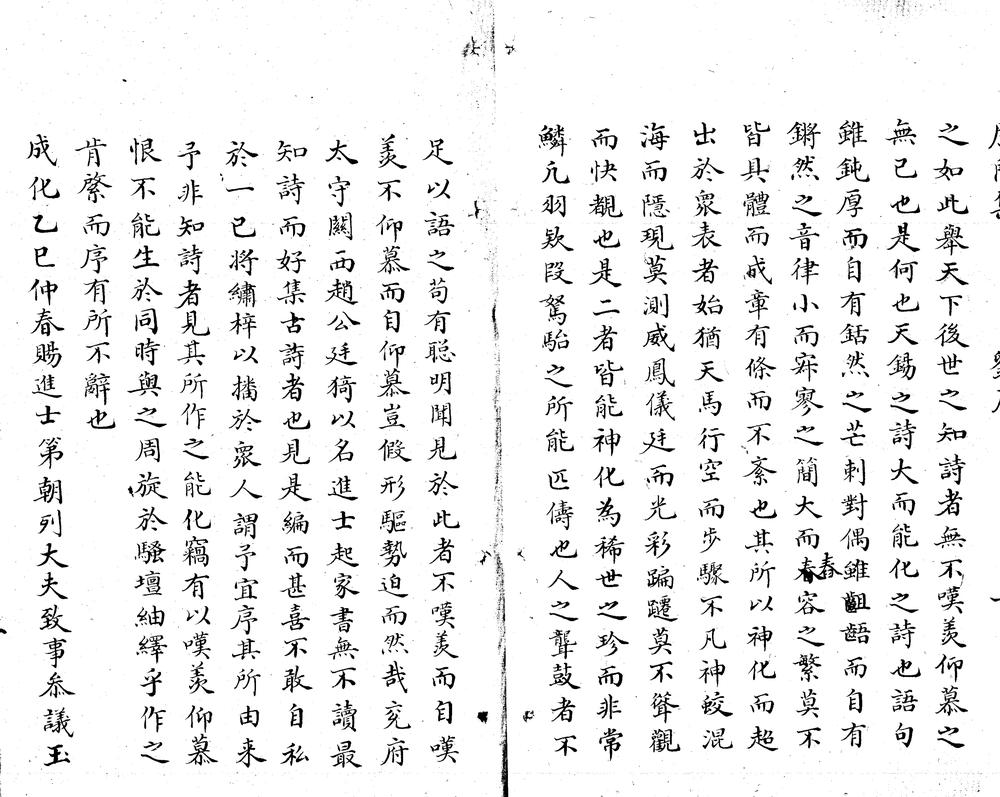 之如此舉天下後世之知詩者無不嘆羡仰慕之
無已也是何也天錫之詩大而能化之詩也語句
雖鈍厚而自有銛然之芒刺對偶雖齟齬而自有
鏘然之音律小而寂寥之簡大而春容之繁莫不
皆具體而成章有條而不紊也其所以神化而超
出於衆表者始猶天馬行空而步驟不凡神蛟混
海而隱現莫測威鳳儀廷而光彩蹁躚莫不聳觀
而快覩也是二者皆能神化為稀世之珍而非常
鱗凡羽欵段駑駘之所能匹儔也人之聾鼓者不
足以語之苟有聡明聞見於此者不嘆羡而自嘆
羡不仰慕而自仰慕豈假形驅勢迫而然哉兖府
太守関西趙公廷猗以名進士起家書無不讀最
知詩而好集古詩者也見是編而甚喜不敢自私
於一己將繡梓以播於衆人謂予宜序其所由来
予非知詩者見其所作之能化竊有以嘆羡仰慕
恨不能生於同時與之周旋於騷壇紬繹乎作之
肯綮而序有所不辭也
成化乙巳仲春賜進士第朝列大夫致事叅議玉